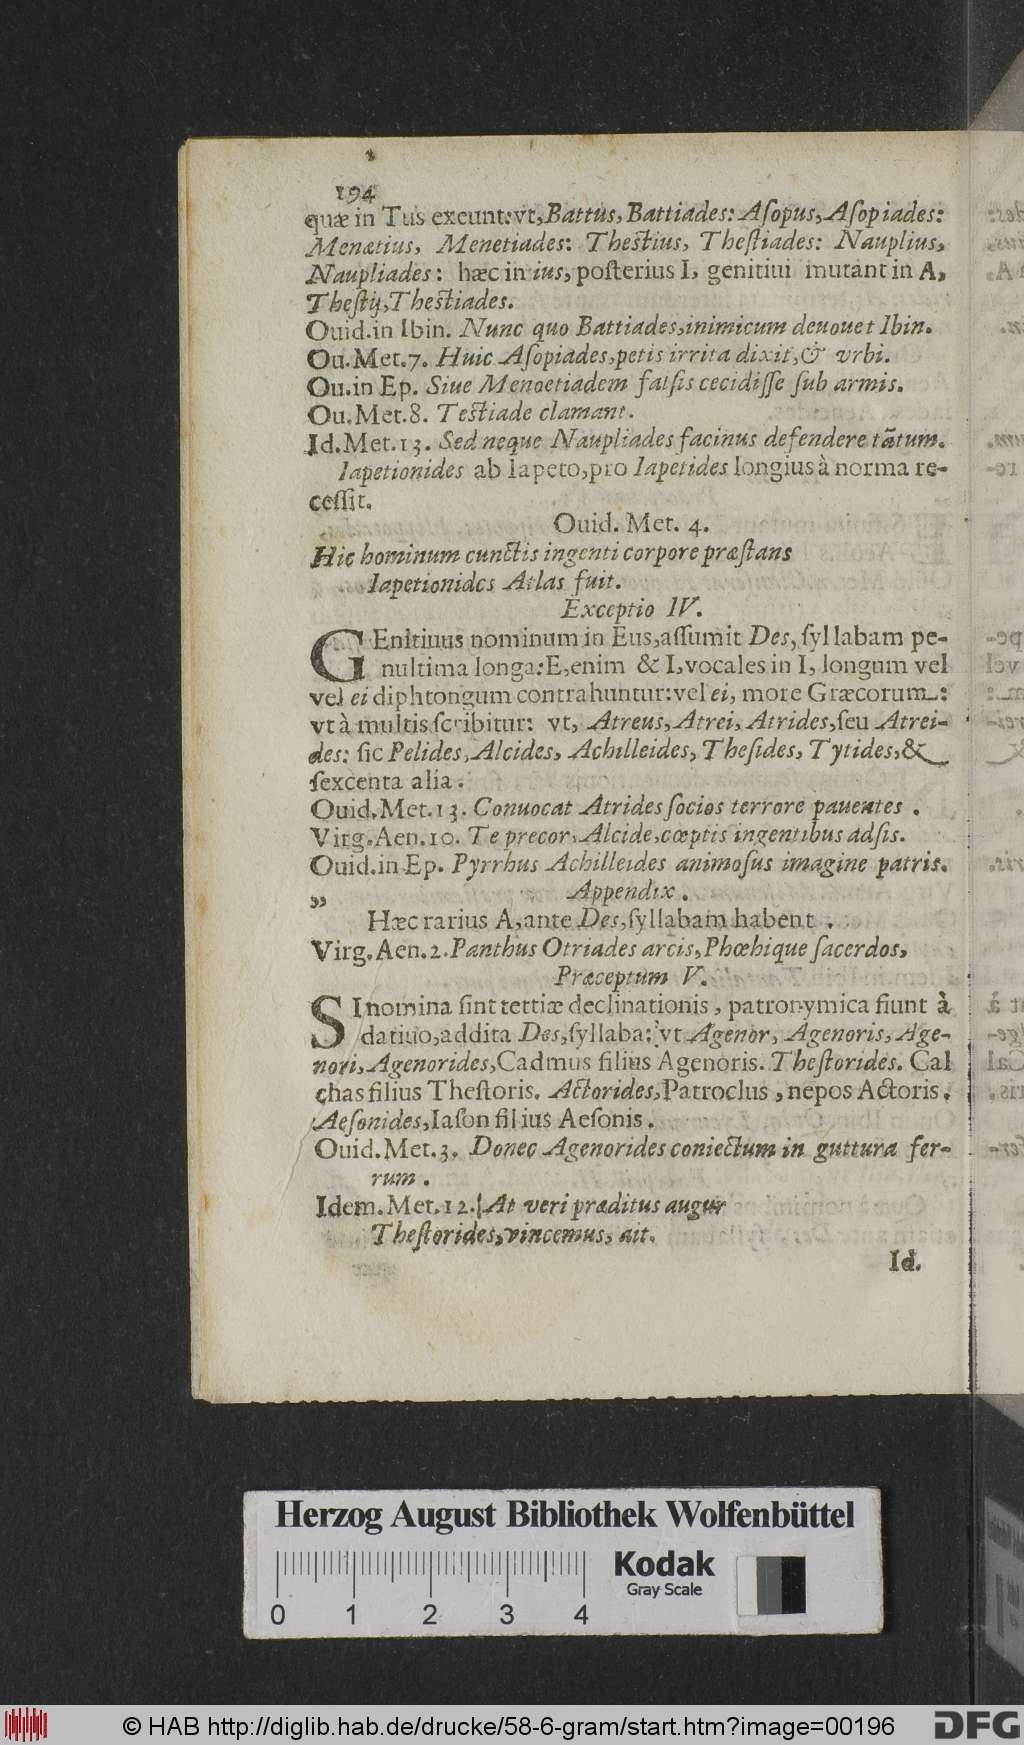 194
quæ in Tus exeunt: vt, Battus, Battiades: Aſopus, Aſopiades:
Menætius, Menetiades: Theſtius, Theſtiades: Nauplius,
Naupliades: hæc in ius, poſterius I, genitiui mutant in A,
Theſtij, Theſtiades.
Ouid. in Ibin. Nunc quo Battiades, inimicum deuouet Ibin.
Ou. Met. 7. Huic Aſopiades, petis irrita dixit, & vrbi.
Ou. in Ep. Siue Menoetiadem falſis cecidiſſe ſub armis.
Ou. Met. 8. Teſtiade clamant.
Id. Met. 13. Sed neque Naupliades facinus defendere tãtum.
Iapetionides ab Iapeto, pro Iapetides longius à norma re-
ceſſit.
Ouid. Met. 4.
Hic hominum cunctis ingenti corpore præſtans
Iapetionides Atlas fuit.
Exceptio IV.
GEnitiuus nominum in Eus, aſſumit Des, ſyllabam pe-
nultima longa: E, enim & I, vocales in I, longum vel
vel ei diphtongum contrahuntur: vel ei, more Græcorum:
vt à multis ſcribitur: vt, Atreus, Atrei, Atrides, ſeu Atrei-
des: ſic Pelides, Alcides, Achilleides, Theſides, Tytides, &
ſexcenta alia.
Ouid. Met. 13. Conuocat Atrides ſocios terrore pauentes.
Virg. Aen. 10. Te precor, Alcide, cœptis ingentibus adſis.
Ouid. in Ep. Pyrrhus Achilleides animoſus imagine patris.
Appendix.
„
Hæc rarius A, ante Des, ſyllabam habent.
Virg. Aen. 2. Panthus Otriades arcis, Phœbique ſacerdos,
Præceptum V.
SI nomina ſint tertiæ declinationis, patronymica fiunt à
datiuo, addita Des, ſyllaba: vt Agenor, Agenoris, Age-
nori, Agenorides, Cadmus filius Agenoris. Theſtorides. Cal
chas filius Theſtoris. Actorides, Patroclus, nepos Actoris.
Aeſonides, Iaſon filius Aeſonis.
Ouid. Met. 3. Donec Agenorides coniectum in guttura fer-
rum.
Idem. Met. 12. At veri præditus augur
Theſtorides, vincemus, ait.
Id.
Herzog August Bibliothek Wolfenbüttel
Kodak
Gray Scale
0 1 2 3 4
© HAB http://diglib.hab.de/drucke/58-6-gram/start.htm?image=00196
DFG